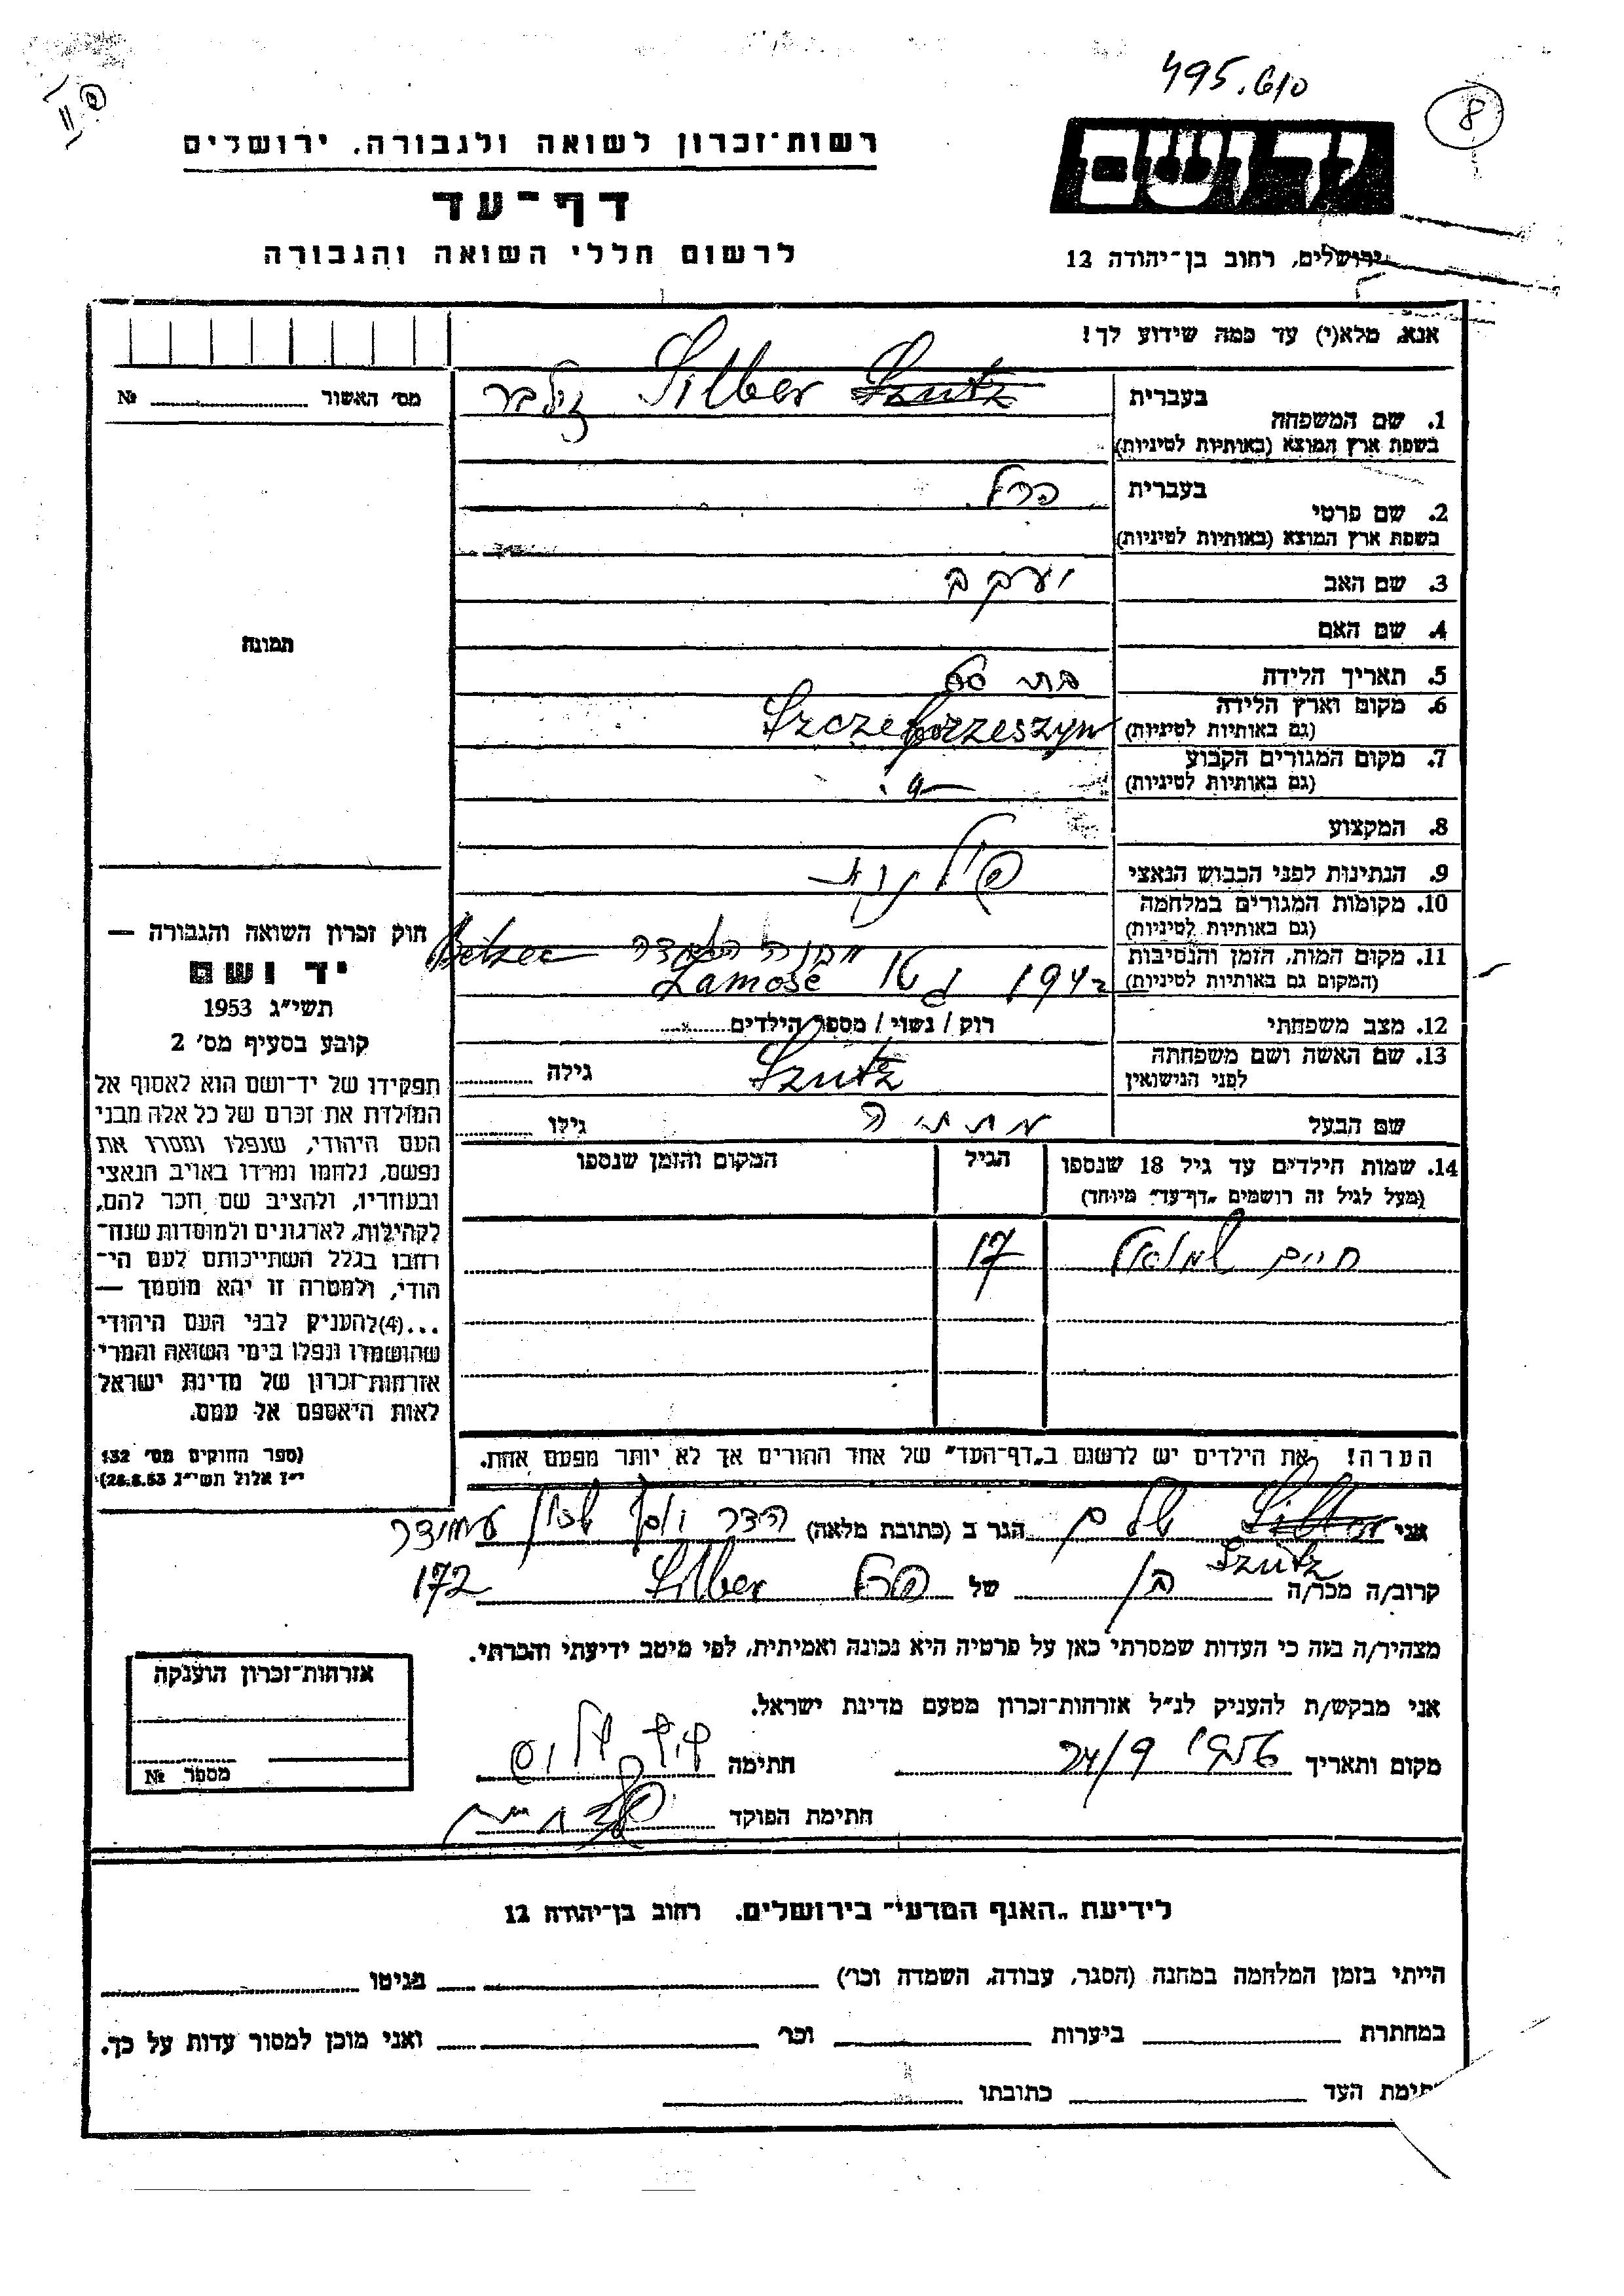 495.610
8
ידושם
רשות־זכרון לשואה ולגבורה, ירושלים
דף־עד
לרשום חללי השואה והגבורה
ירושלים, רחוב בן־יהודה 12
אנא, מלא(י) עד כמה שידוע לך!
מס' האשור № 
1. שם המשפחה בעברית Szutz Silber זילבר
בשפת ארץ המוצא (באותיות לטיניות)
2. שם פרטי בעברית פרל
בשפת ארץ המוצא (באותיות לטיניות)
3. שם האב יעקב
4. שם האם
תמונה
5. תאריך הלידה בת 50
6. מקום וארץ הלידה Szczebrzeszyn
(גם באותיות לטיניות)
7. מקום המגורים הקבוע
(גם באותיות לטיניות)
8. המקצוע
9. הנתינות לפני הכבוש הנאצי פולנית
10. מקומות המגורים במלחמה
(גם באותיות לטיניות)
11. מקום המות, הזמן והנסיבות מחנה השמדה Belzec
(המקום גם באותיות לטיניות) 1942 גטו Zamosc
12. מצב משפחתי רוק / נשוי / מספר הילדים
13. שם האשה ושם משפחתה Szutz גילה
לפני הנישואין
שם הבעל מתתיה גילו
14. שמות הילדים עד גיל 18 שנספו הגיל המקום והזמן שנספו
(מעל לגיל זה רושמים "דף־עד" מיוחד)
חיים שמואל 17
הערה! את הילדים יש לרשום ב"דף־העד" של אחד ההורים אך לא יותר מפעם אחת.
חוק זכרון השואה והגבורה —
יד ושם
תשי"ג 1953
קובע בסעיף מס' 2
תפקידו של יד־ושם הוא לאסוף אל
המולדת את זכרם של כל אלה מבני
העם היהודי, שנפלו ומסרו את
נפשם, נלחמו ומרדו באויב הנאצי
ובעוזריו, ולהציב שם וזכר להם,
לקהילות, לארגונים ולמוסדות שנח־
רבו בגלל השתייכותם לעם הי־
הודי, ולמטרה זו יהא מוסמך —
...(4)להעניק לבני העם היהודי
שהושמדו ונפלו בימי השואה והמרי
אזרחות־זכרון של מדינת ישראל
לאות היאספם אל עמם.
(ספר החוקים מס' 132
י"ז אלול תשי"ג 28.8.53)
אני Silber שלום הגר ב (כתובת מלאה) הדר יוסף שכון עממי
Szutz
קרוב/ה מכר/ה בן של פרל Silber 172
מצהיר/ה בזה כי העדות שמסרתי כאן על פרטיה היא נכונה ואמיתית, לפי מיטב ידיעתי והכרתי.
אני מבקש/ת להעניק לנ"ל אזרחות־זכרון מטעם מדינת ישראל.
אזרחות־זכרון הוענקה
מספר №
מקום ותאריך 24/9 1956 חתימה
חתימת הפוקד
לידיעת "האגף המדעי" בירושלים, רחוב בן־יהודה 12
הייתי בזמן המלחמה במחנה (הסגר, עבודה, השמדה וכו') בגיטו
במחתרת ביערות וכו' ואני מוכן למסור עדות על כך.
חתימת העד כתובתו